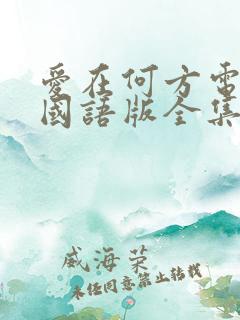 愛在何方電
國語版全集
威海荣
未经同意禁止转载